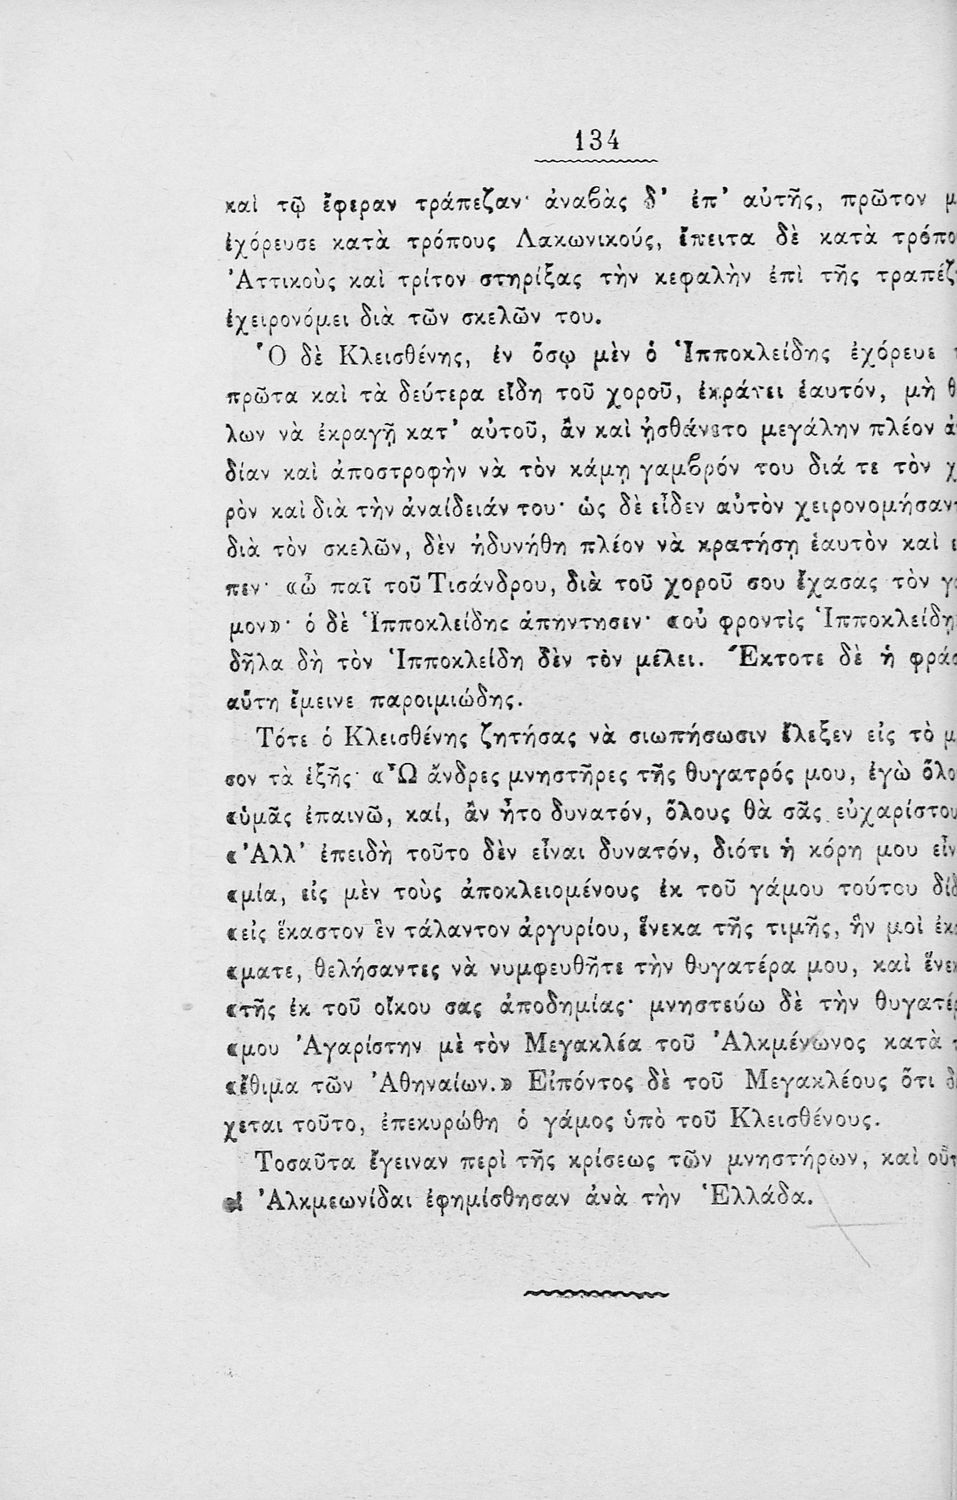 134
καὶ τῷ ἔφεραν τράπεζαν· ἀναβὰς δ' ἐπ' αὐτῆς, πρῶτον μ
ἐχόρευσε κατὰ τρόπους Λακωνικούς, ἔπειτα δὲ κατὰ τρόπο
Ἀττικοὺς καὶ τρίτον στηρίξας τὴν κεφαλὴν ἐπὶ τῆς τραπέζ
ἐχειρονόμει διὰ τῶν σκελῶν του.
Ὁ δὲ Κλεισθένης, ἐν ὅσῳ μὲν ὁ Ἱπποκλείδης ἐχόρευε
πρῶτα καὶ τὰ δεύτερα εἴδη τοῦ χοροῦ, ἐκράτει ἑαυτόν, μὴ θ
λων νὰ ἐκραγῇ κατ' αὐτοῦ, ἂν καὶ ᾐσθάνετο μεγάλην πλέον ἀ
δίαν καὶ ἀποστροφὴν νὰ τὸν κάμῃ γαμβρόν του διά τε τὸν χ
ρὸν καὶ διὰ τὴν ἀναίδειάν του· ὡς δὲ εἶδεν αὐτὸν χειρονομήσαν
διὰ τὸν σκελῶν, δὲν ἠδυνήθη πλέον νὰ κρατήσῃ ἑαυτὸν καὶ ε
πεν· «ὦ παῖ τοῦ Τισάνδρου, διὰ τοῦ χοροῦ σου ἔχασας τὸν γά
μον»· ὁ δὲ Ἱπποκλείδης ἀπήντησεν· «οὐ φροντὶς Ἱπποκλείδῃ
δῆλα δὴ τὸν Ἱπποκλείδη δὲν τὸν μέλει. Ἔκτοτε δὲ ἡ φράσ
αὕτη ἔμεινε παροιμιώδης.
Τότε ὁ Κλεισθένης ζητήσας νὰ σιωπήσωσιν ἔλεξεν εἰς τὸ μ
σον τὰ ἑξῆς· «Ὦ ἄνδρες μνηστῆρες τῆς θυγατρός μου, ἐγὼ ὅλο
«ὑμᾶς ἐπαινῶ, καί, ἂν ἦτο δυνατόν, ὅλους θὰ σᾶς εὐχαρίστου
«Ἀλλ' ἐπειδὴ τοῦτο δὲν εἶναι δυνατόν, διότι ἡ κόρη μου εἶν
«μία, εἰς μὲν τοὺς ἀποκλειομένους ἐκ τοῦ γάμου τούτου δίδ
«εἰς ἕκαστον ἓν τάλαντον ἀργυρίου, ἕνεκα τῆς τιμῆς, ἣν μοὶ ἐκά
«ματε, θελήσαντες νὰ νυμφευθῆτε τὴν θυγατέρα μου, καὶ ἕνεκ
«τῆς ἐκ τοῦ οἴκου σας ἀποδημίας· μνηστεύω δὲ τὴν θυγατέρ
«μου Ἀγαρίστην μὲ τὸν Μεγακλέα τοῦ Ἀλκμένωνος κατὰ τ
«ἔθιμα τῶν Ἀθηναίων.» Εἰπόντος δὲ τοῦ Μεγακλέους ὅτι δ
χεται τοῦτο, ἐπεκυρώθη ὁ γάμος ὑπὸ τοῦ Κλεισθένους.
Τοσαῦτα ἔγειναν περὶ τῆς κρίσεως τῶν μνηστήρων, καὶ οὕτ
οἱ Ἀλκμεωνίδαι ἐφημίσθησαν ἀνὰ τὴν Ἑλλάδα.